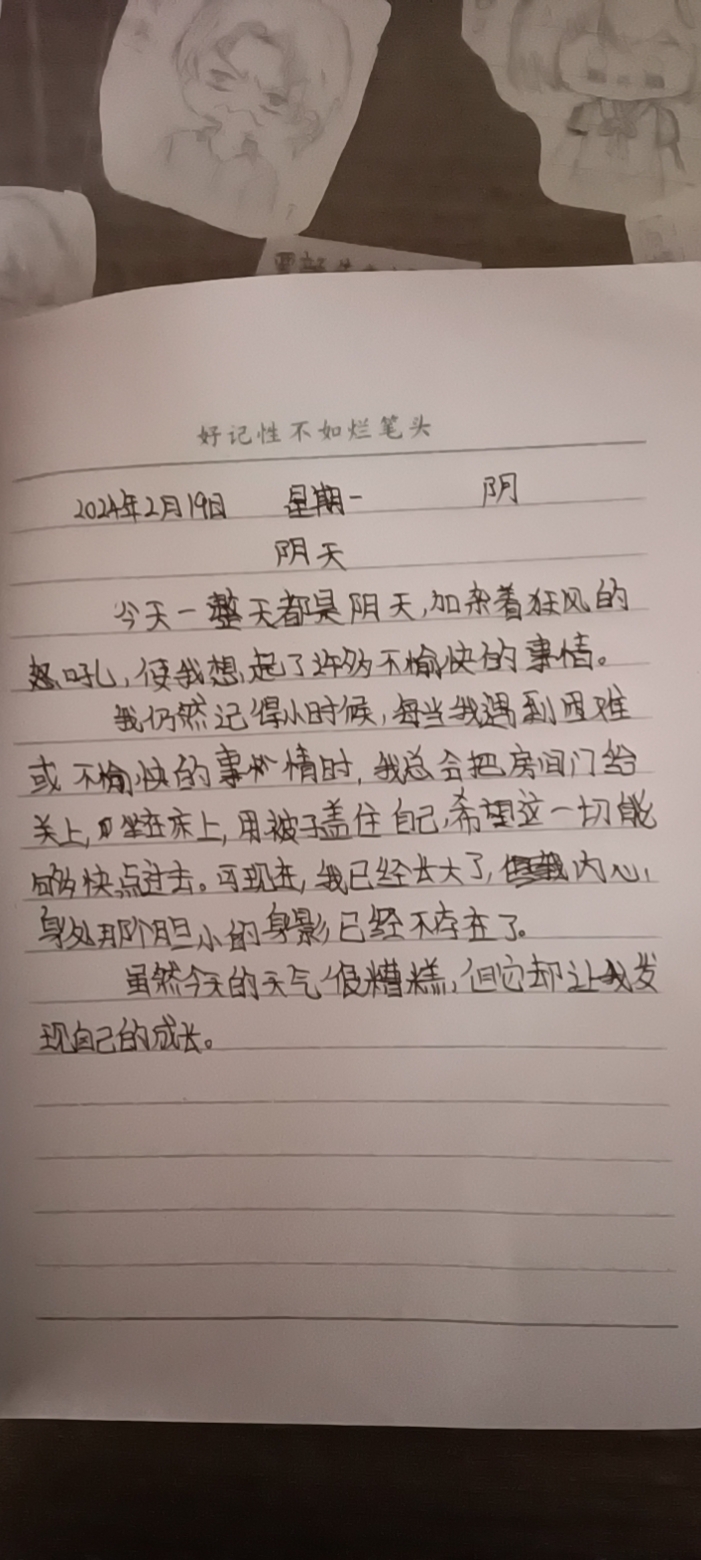 好记性不如烂笔头
2024年2月19日 星期一 阴
阴天
今天一整天都是阴天,加杂着狂风的
怒吼,使我想起了许多不愉快的事情。
我仍然记得小时候,每当我遇到困难
或不愉快的事情时,我总会把房间门给
关上,坐在床上,用被子盖住自己,希望这一切能
够快点过去。可现在,我已经长大了,内心
身处那个胆小的身影已经不存在了。
虽然今天的天气很糟糕,但它却让我发
现自己的成长。